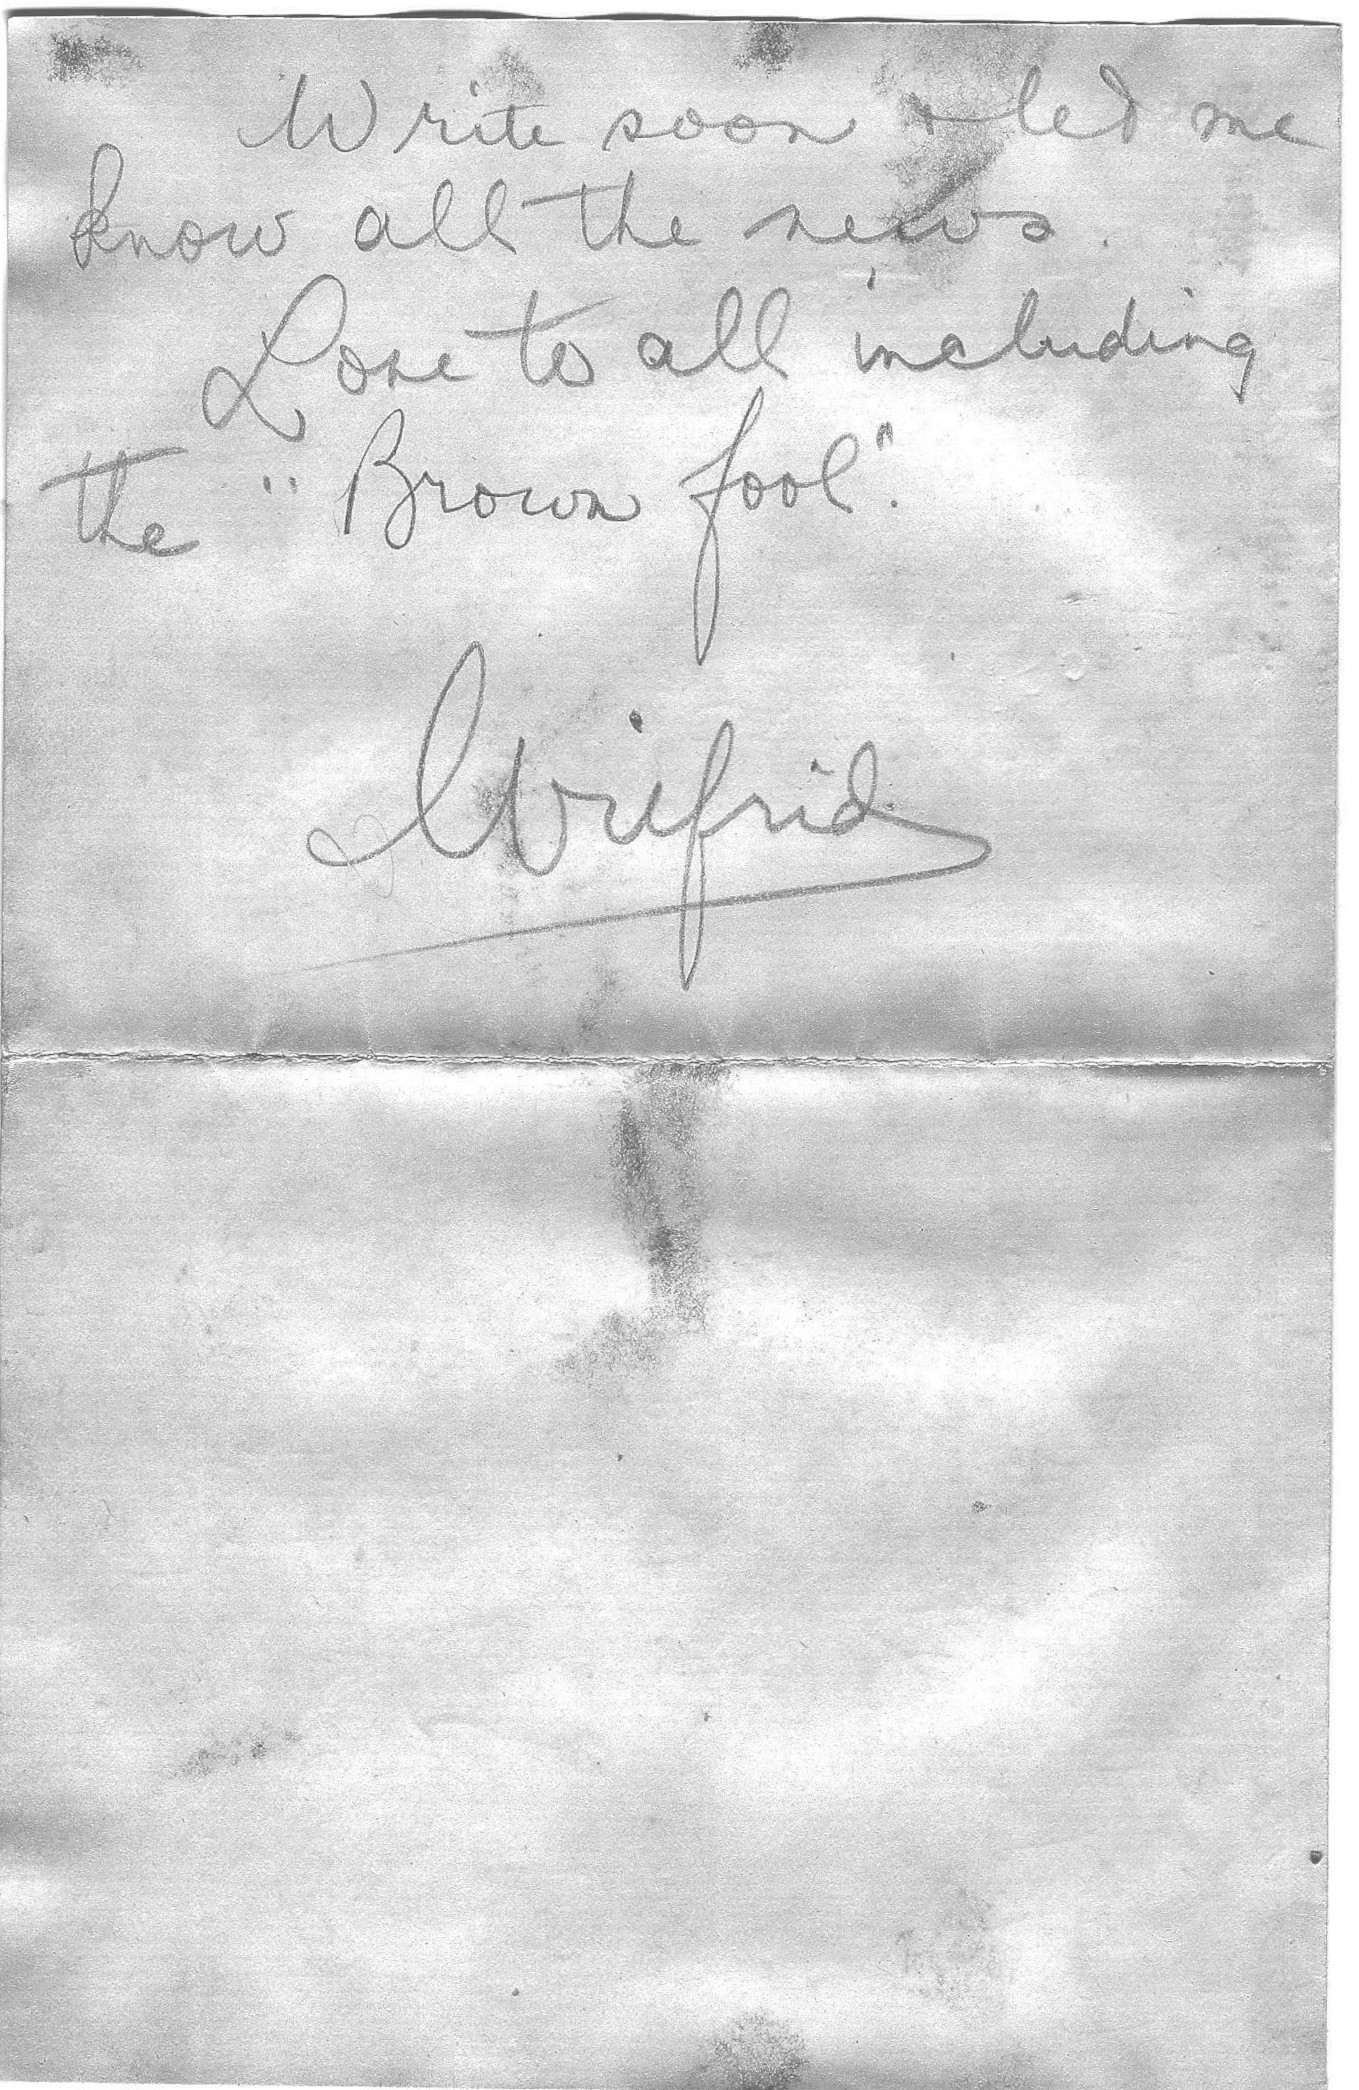 Write soon & let me
know all the news.
Love to all including
the "Brown fool".
Wilfrid